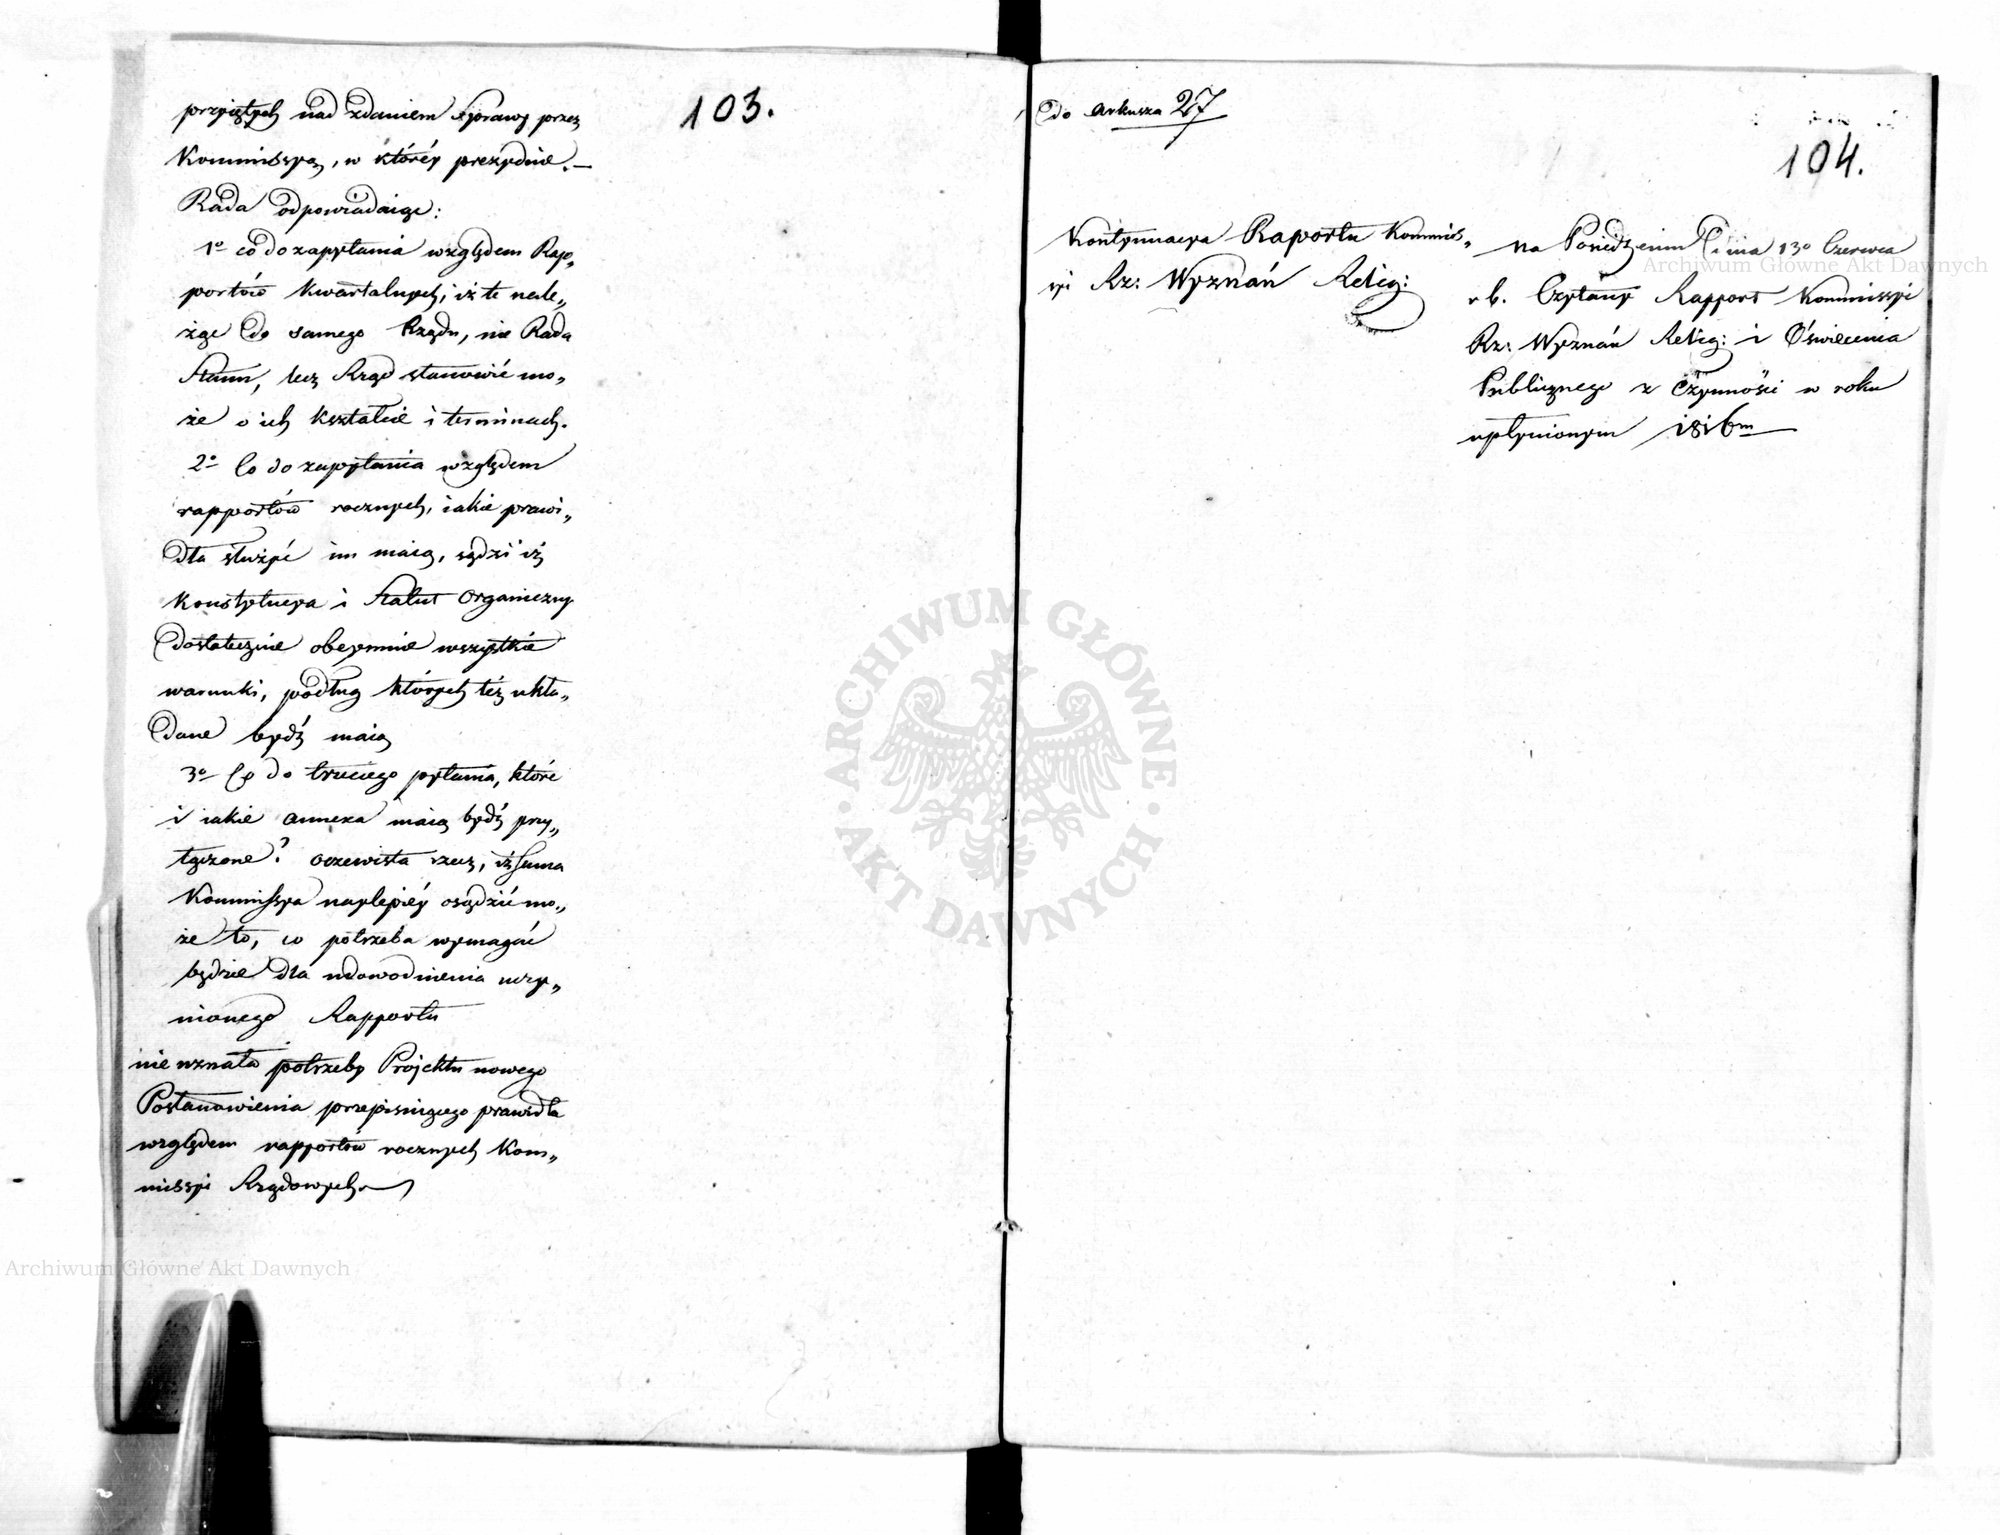 103.
przyiętych nad zdaniem sprawy przez
Kommissyą, w któréy prezyduie.—
Rada odpowiadaiąc:
1º co do zapytania względem Rap„
portów kwartalnych, iż te nale„
żąc do samego Rządu, nie Rada
Stanu, lecz Rząd stanowić mo„
że o ich kształcie i terminach.
2º Co do zapytania względem
rapportów rocznych, iakie prawi„
dła służyć im maią, sądzi iż
Konstytucya i Statut Organiczny
dostatecznie obeymuie wszystkie
warunki, podług których téż ukła„
dane bydź maią
3º Co do trzeciego pytania, które
i iakie annexa maią bydź przy„
łączone? oczewista rzecz, iż sama
Kommissya naylepiéy osądzić mo„
że to, co potrzeba wymagać
będzie dla udowodnienia uczy„
nionego Rapportu
nie uznała potrzeby Projektu nowego
Postanowienia przepisuiącego prawidła
względem rapportów rocznych Kom„
missyi Rządowych.
do arkusza 27
104.
Kontynuacya Raportu Kommis„
syi Rz: Wyznań Relig:
na Posiedzeniu Dnia 13º Czerwca
r b. Czytany Rapport Kommissyi
Rz: Wyznań Relig: i Oświecenia
Publicznego z Czynności w roku
upłynionym 1816m
ARCHIWUM GŁÓWNE
AKT DAWNYCH
Archiwum Główne Akt Dawnych
Archiwum Główne Akt Dawnych